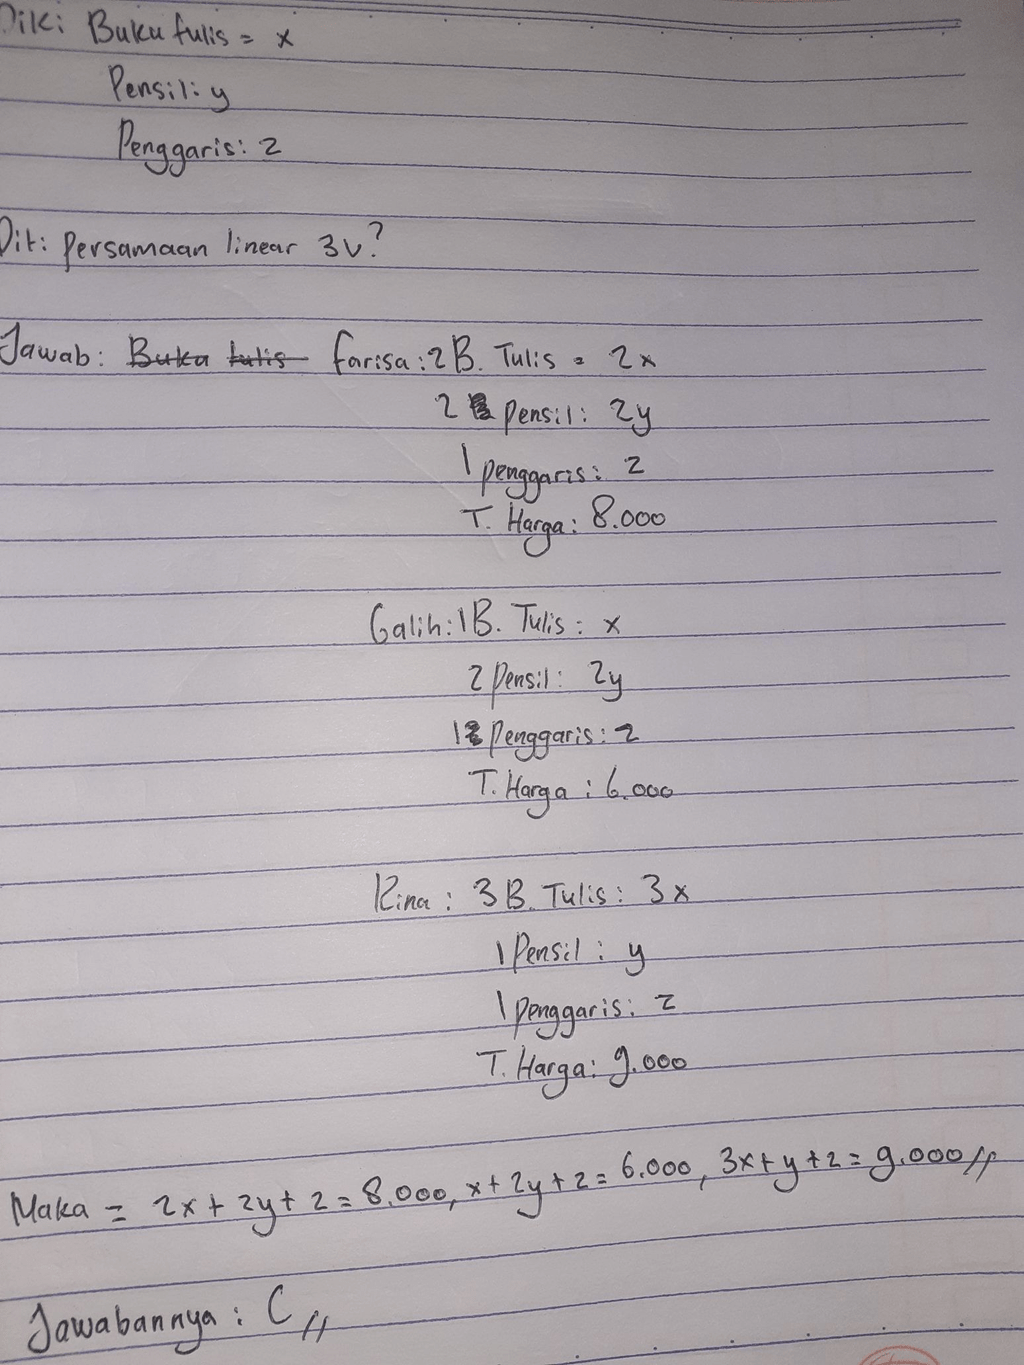 Dik: Buku tulis = x
Pensil: y
Penggaris: z
Dit: Persamaan linear 3v?
Jawab: Buka tulis Farisa: 2 B. Tulis = 2x
2 Pensil: 2y
1 Penggaris: z
T. Harga: 8.000
Galih: 1 B. Tulis: x
2 Pensil: 2y
1 Penggaris: z
T. Harga: 6.000
Rina: 3 B. Tulis: 3x
1 Pensil: y
1 Penggaris: z
T. Harga: 9.000
Maka = 2x + 2y + z = 8.000, x + 2y + z = 6.000, 3x + y + z = 9.000 //
Jawabannya: C //